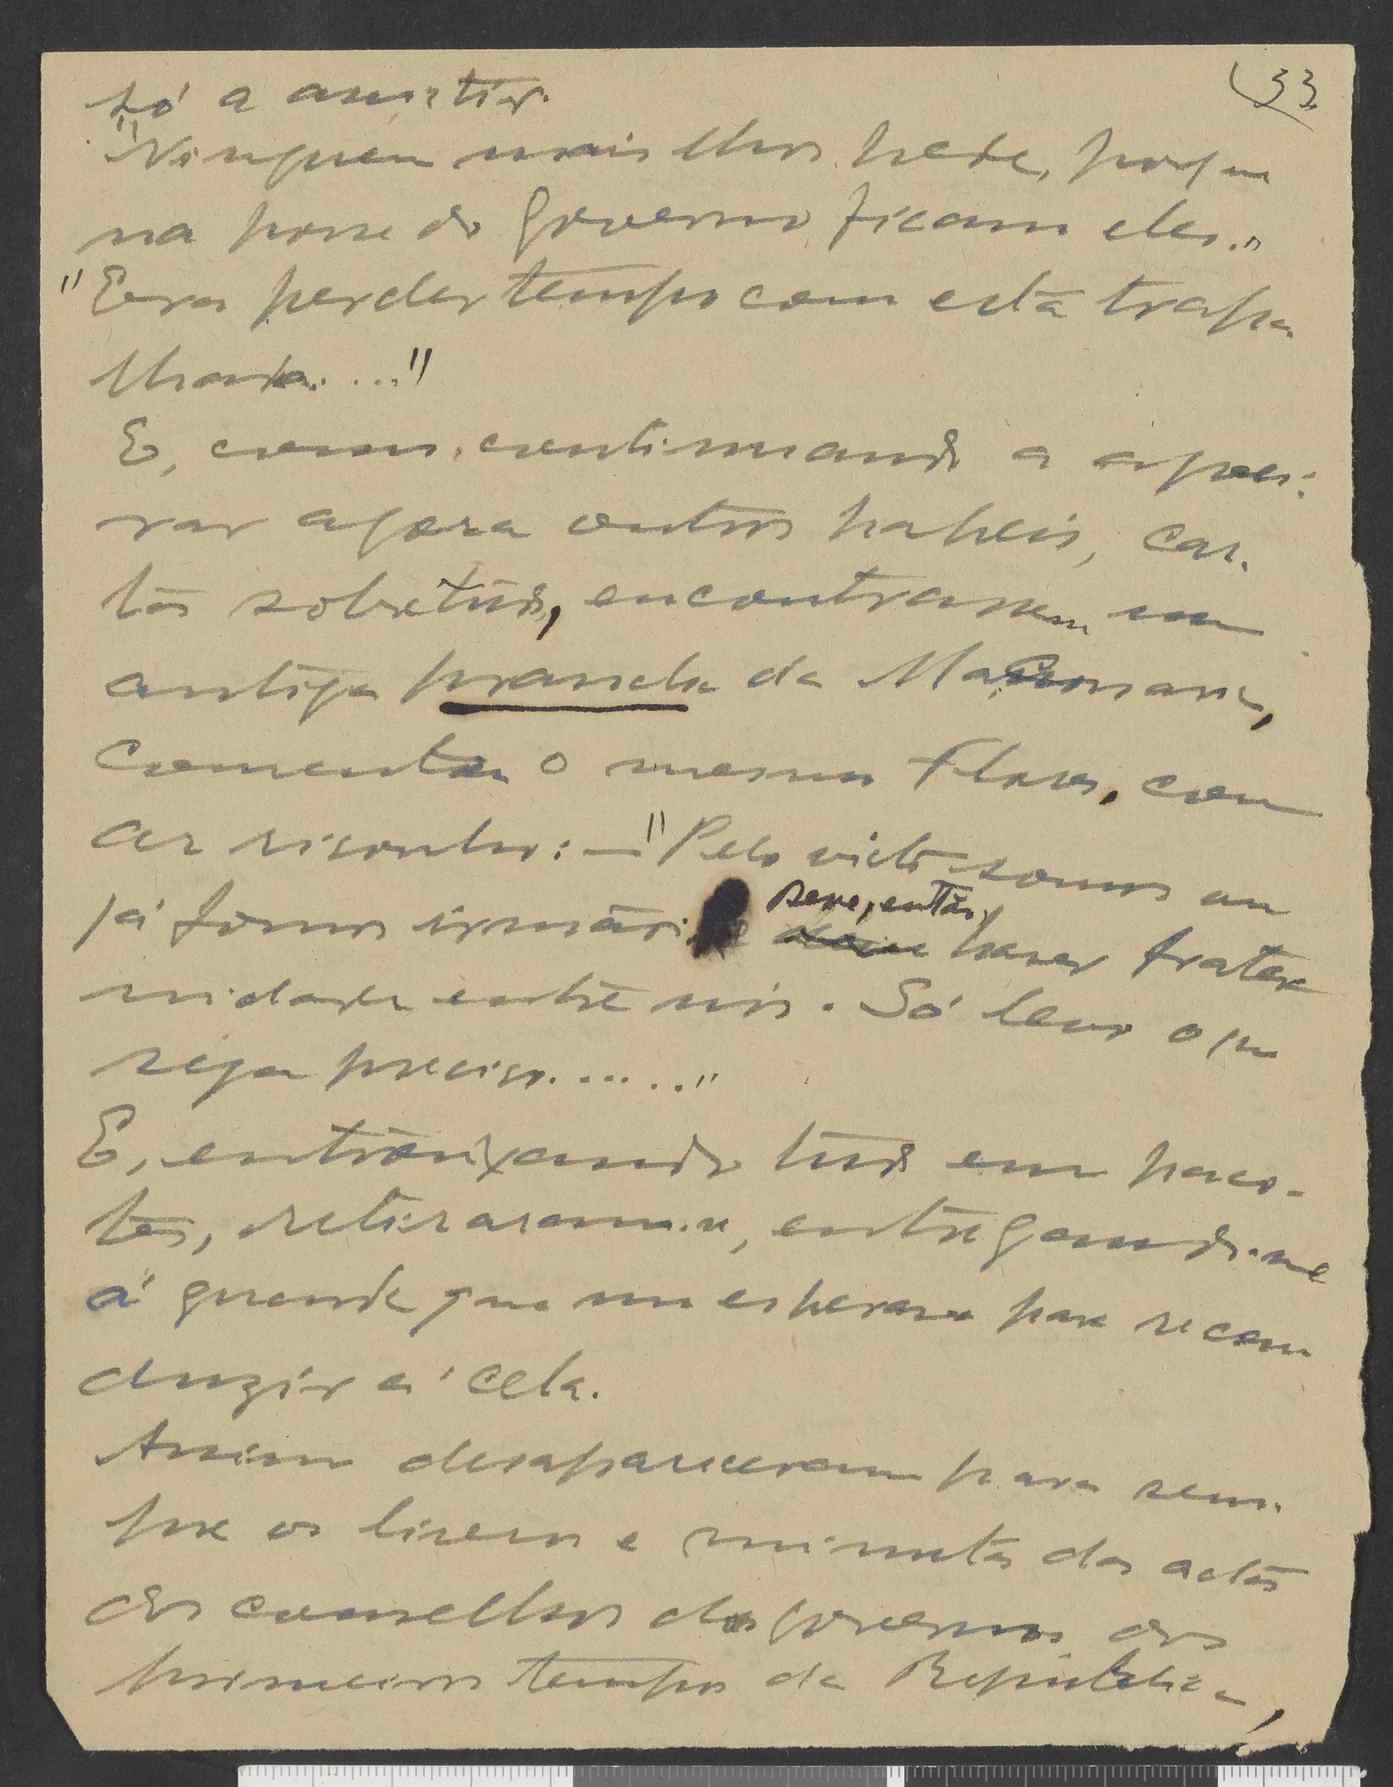 33
só a assistir.
"Ninguem mais lhos pede, porque
na posse do Governo ficam eles."
"Era perder tempo com esta trapa-
lhada...."
E, como, continuando a
agora outros papeis, car-
tas sobretudo, encontrassem uma
antiga prancha da Maçonaria,
comentou o mesmo Flores, com
ar risonho: — "Pelo visto somos ou
já fomos irmãos
Deve, então, haver frater-
nidade entre nós. Só levo o que
seja preciso......"
E, entrouxando tudo em paco-
tes, retiraram-se, entregando-me
á guarda que me esperava para recon-
duzir á cela.
Assim desapareceram para sem-
pre os livros e minutas das actas
dos conselhos dos governos dos
primeiros tempos da Republica,